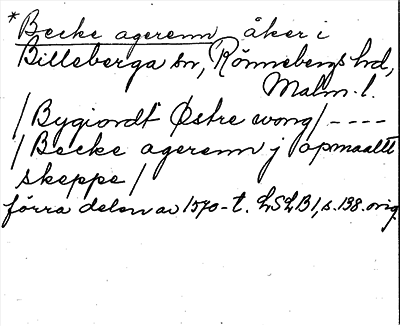 *Becke agerenn, åker i
Billeberga sn, Rönnebergs hd,
Malm. l.
/Bygiondt Østre wong/ ----
/Becke agerenn j opmaaltt
skeppe/
förra delen av 1570-t. LSLB1, s. 138. orig.